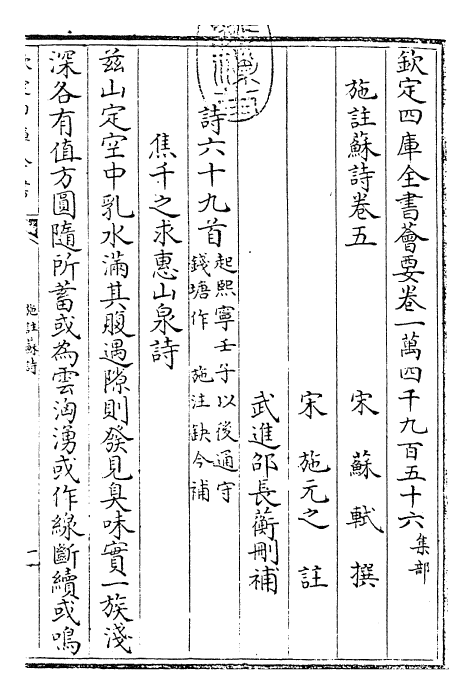 欽定四庫全書薈要卷一萬四千九百五十六 集部
施註蘇詩卷五
宋 蘇軾 撰
宋 施元之 註
武進邵長蘅刪補
詩六十九首 起熙寧壬子以後通守錢塘作 施注缺今補
焦千之求惠山泉詩
茲山定空中乳水滿其腹遇隙則發見臭味實一族淺
深各有值方圓隨所蓄或為雲洶湧或作線斷續或鳴
施註蘇詩